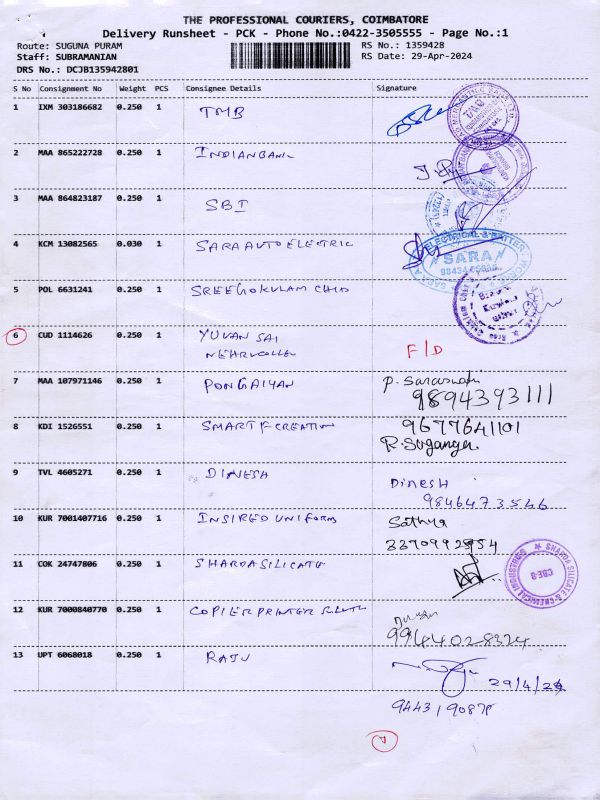 THE PROFESSIONAL COURIERS, COIMBATORE
Delivery Runsheet - PCK - Phone No.:0422-3505555 - Page No.:1
Route: SUGUNA PURAM RS No.: 1359428
Staff: SUBRAMANIAN RS Date: 29-Apr-2024
DRS No.: DCJB135942801
S No Consignment No Weight PCS Consignee Details Signature
1 IXM 303186682 0.250 1 TMB
2 MAA 865222728 0.250 1 INDIAN BANK
3 MAA 864823187 0.250 1 SBI
4 KCM 13082565 0.030 1 SARA AUTO ELECTRIC
ELECTRICAL & BATTER
SARA
5 POL 6631241 0.250 1 SREEGOKULAM CHID
6 CUD 1114626 0.250 1 YUVAN SAI F/D
NEHRUCOLLEG
7 MAA 107971146 0.250 1 PONGAIYAN P. Saraswathi
9894393111
8 KDI 1526551 0.250 1 SMART F CREATION 9677641101
R. Suganya
9 TVL 4605271 0.250 1 DINESH Dinesh
9846473546
10 KUR 7001407716 0.250 1 INSIRED UNIFORMS Sathya
3370992954
11 COK 24747806 0.250 1 SHARDA SILICATE
SHARDA SILICATE & CHEMICAL INDUSTRIES
CBE-8
12 KUR 7000840770 0.250 1 COPIER PRINTER
9944028324
13 UPT 6068018 0.250 1 RAJU
29/4/24
9443190878